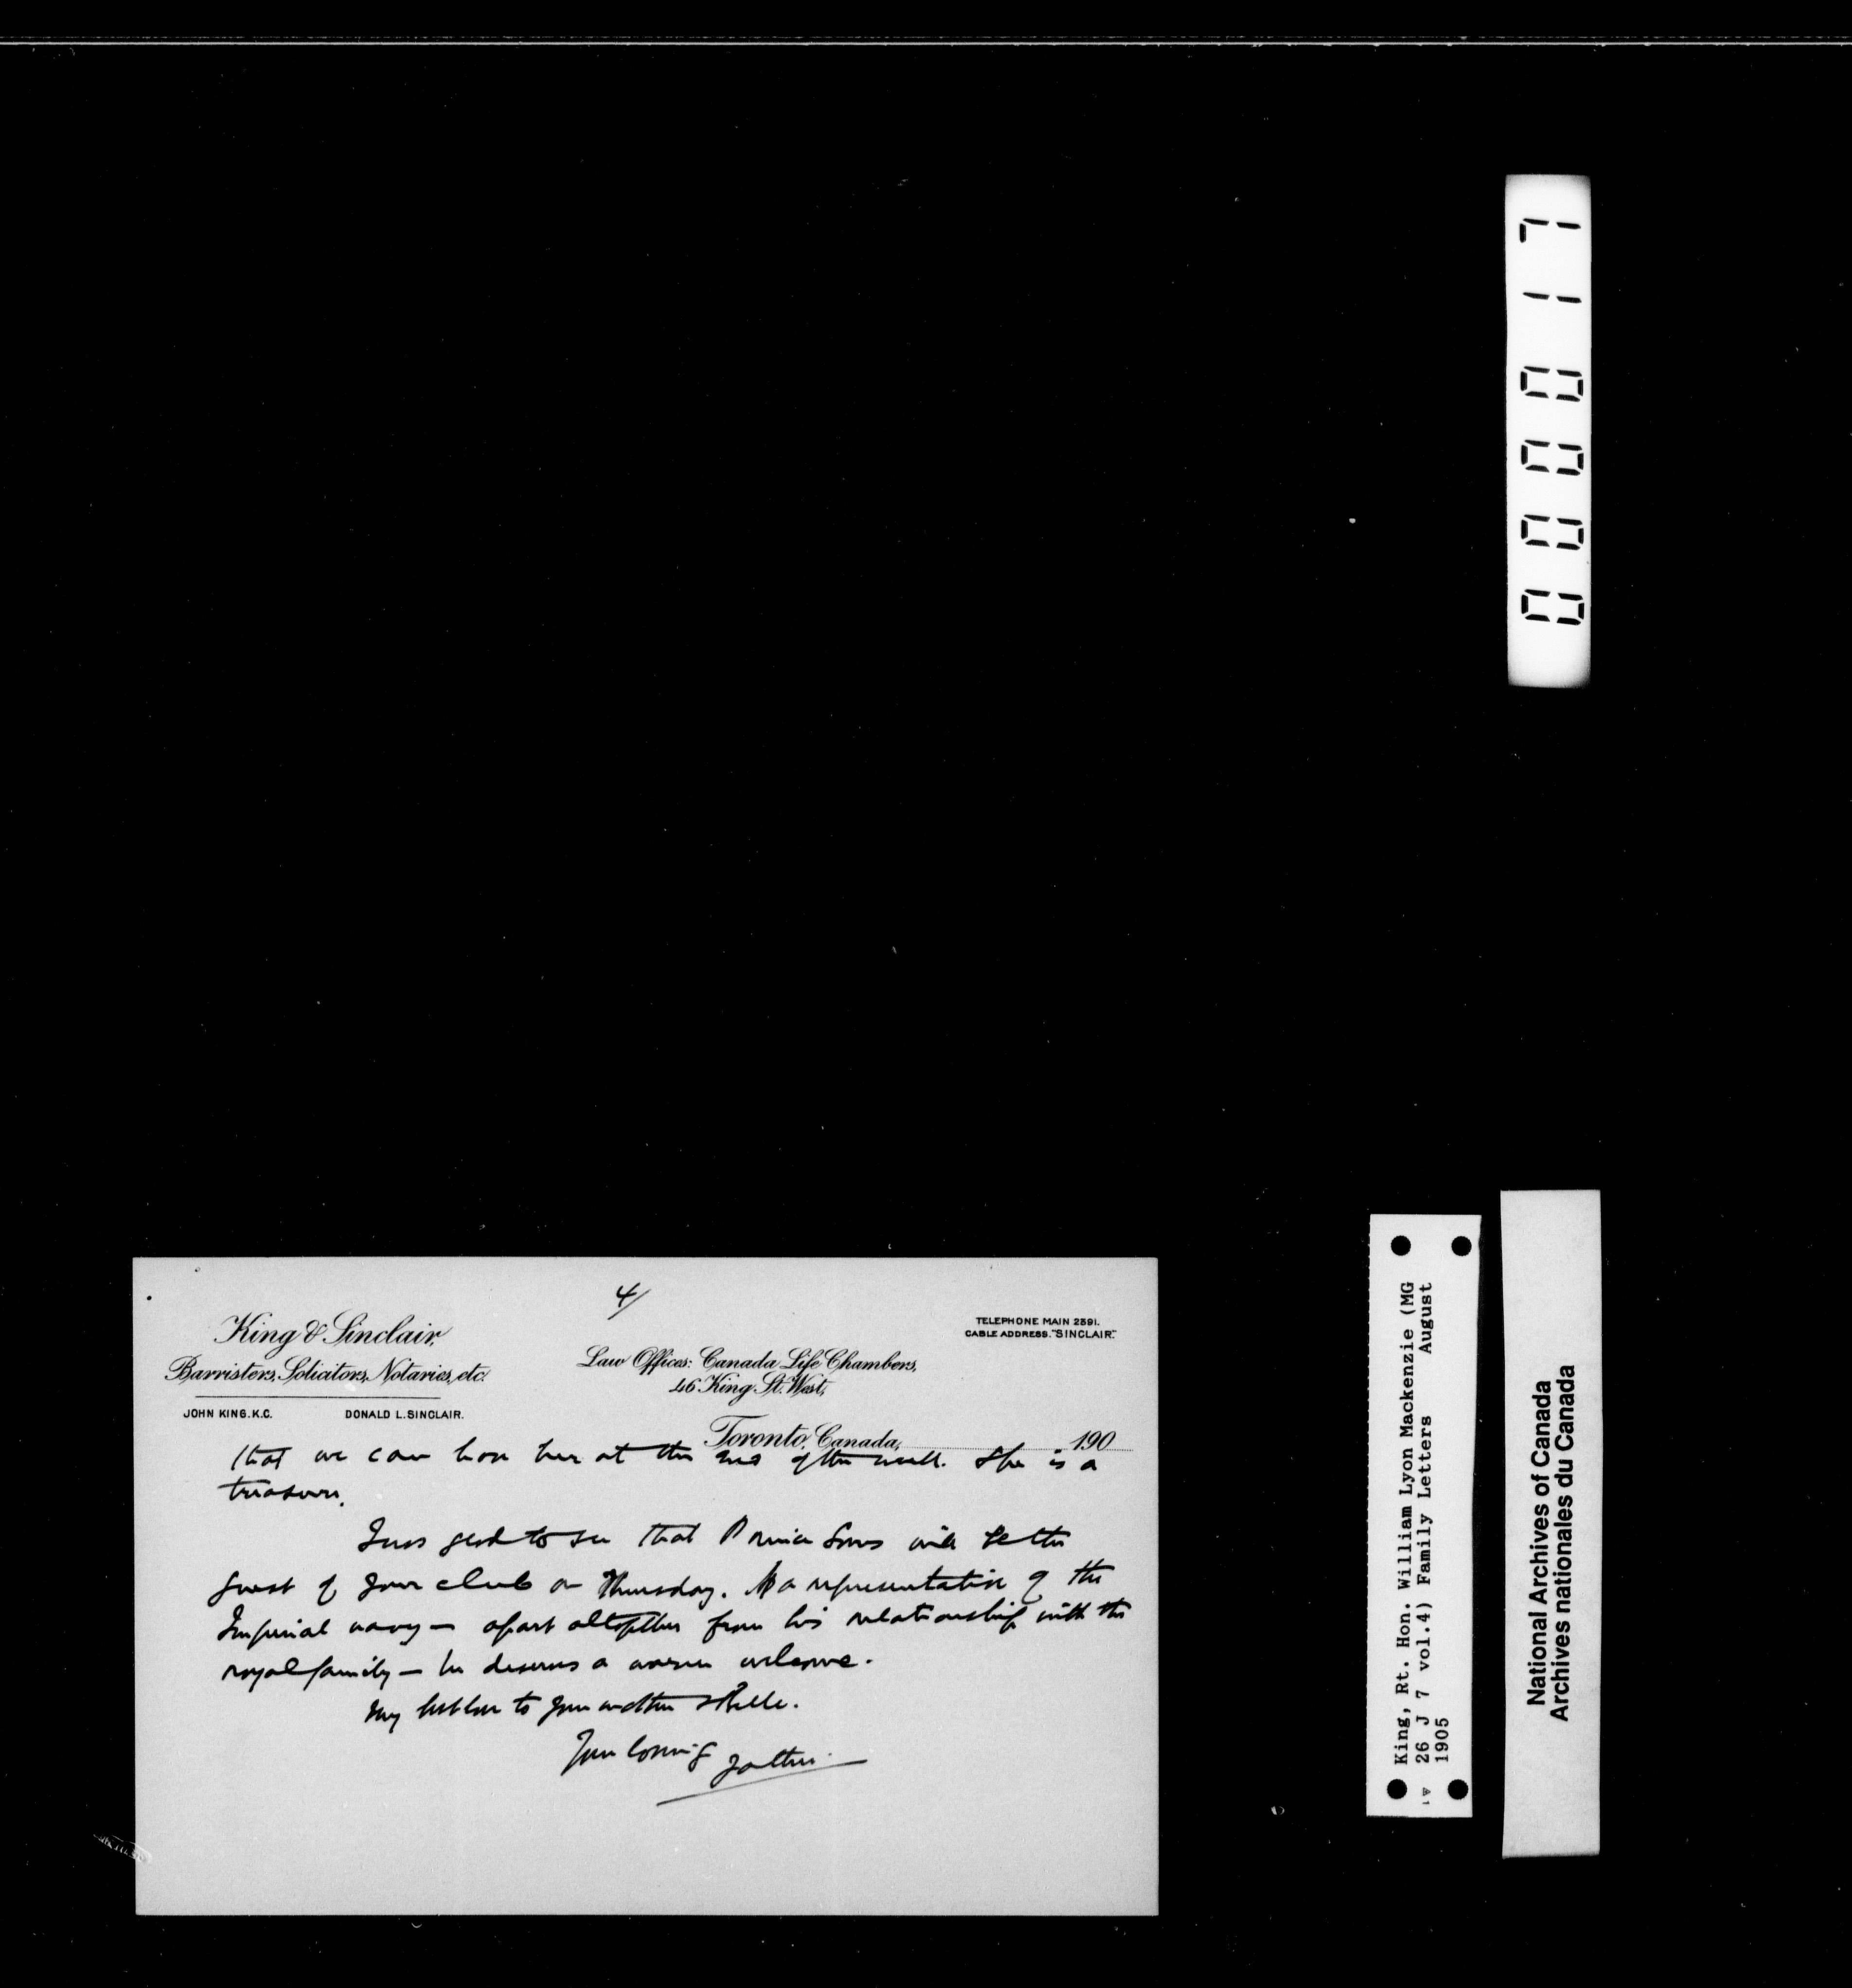 4/
King & Sinclair,
Barristers, Solicitors, Notaries, etc.
JOHN KING. K.C. DONALD L. SINCLAIR.
Law Offices: Canada Life Chambers,
46 King St. West,
TELEPHONE MAIN 2391.
CABLE ADDRESS. "SINCLAIR."
Toronto, Canada, 190
that we can have her at the end of the week. She is a
treasure.
I was glad to see that Prince Louis will be the
guest of your club on Thursday. As a representative of the
Imperial navy — apart altogether from his relationship with the
royal family — he deserves a warm welcome.
My best love to your mother & Belle.
Your loving father.
000017
King, Rt. Hon. William Lyon Mackenzie (MG
26 J 7 vol.4) Family Letters August
1905
National Archives of Canada
Archives nationales du Canada